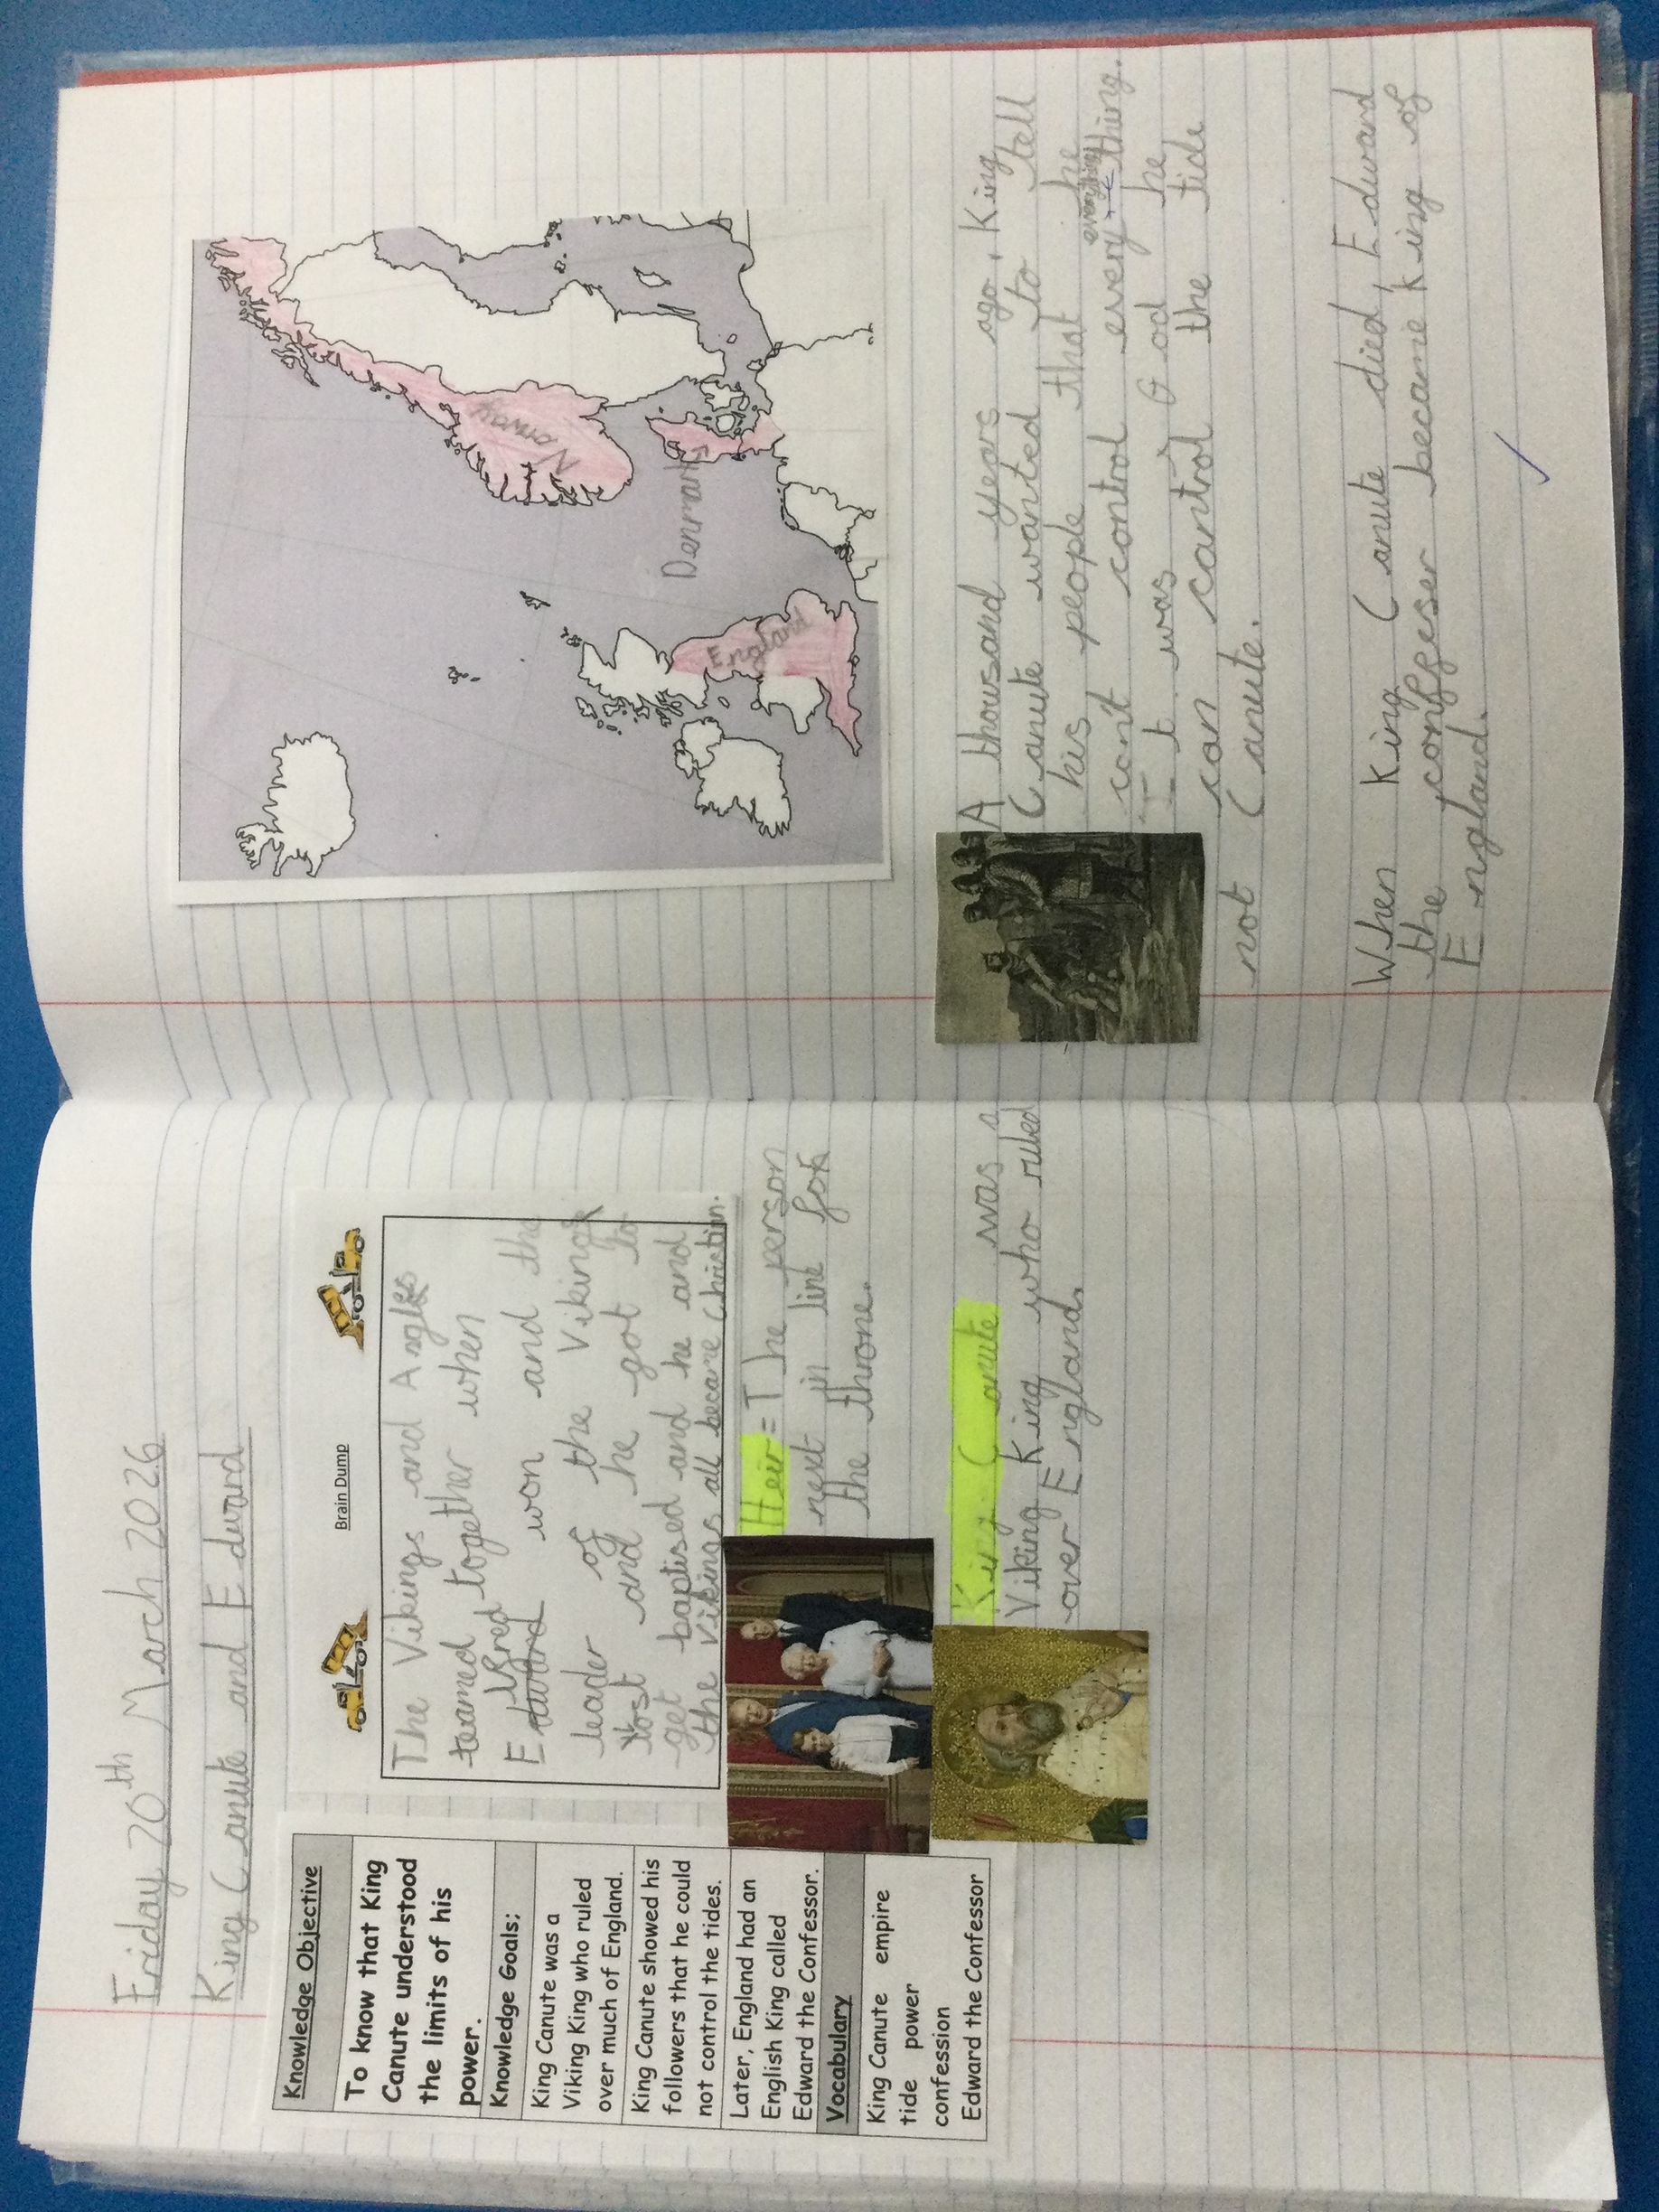 Friday 20th March 2026
King Canute and Edward
Knowledge Objective
To know that King
Canute understood
the limits of his
power.
Knowledge Goals;
King Canute was a
Viking King who ruled
over much of England.
King Canute showed his
followers that he could
not control the tides.
Later, England had an
English King called
Edward the Confessor.
Vocabulary
King Canute empire
tide power
confession
Edward the Confessor
Brain Dump
The Vikings and Angles
teamed together when
Elfred
Edward won and the
leader of the Vikings
lost and he got to
get baptised and he and
the Vikings all became Christian.
Heir = The person
next in line for
the throne.
King Canute was a
Viking King who ruled
over England.
Norway
Denmark
England
A thousand years ago, King
Canute wanted to tell
his people that he
everything
cant control every thing.
It was God he
can control the tide
not Canute.
When King Canute died, Edward
the conffeser became King of
England.